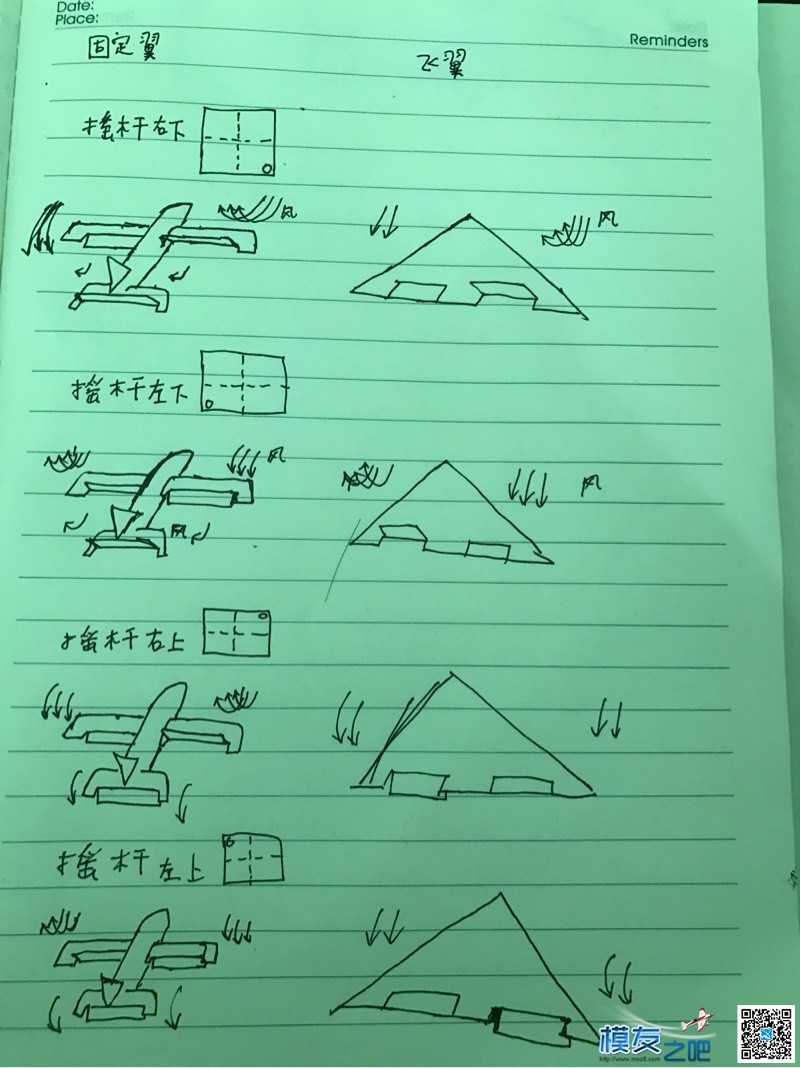 Date:
Place:
Reminders
固定翼
飞翼
摇杆右下
风
风
摇杆左下
风
风
风
摇杆右上
摇杆左上
模友之吧
http://www.moz8.com